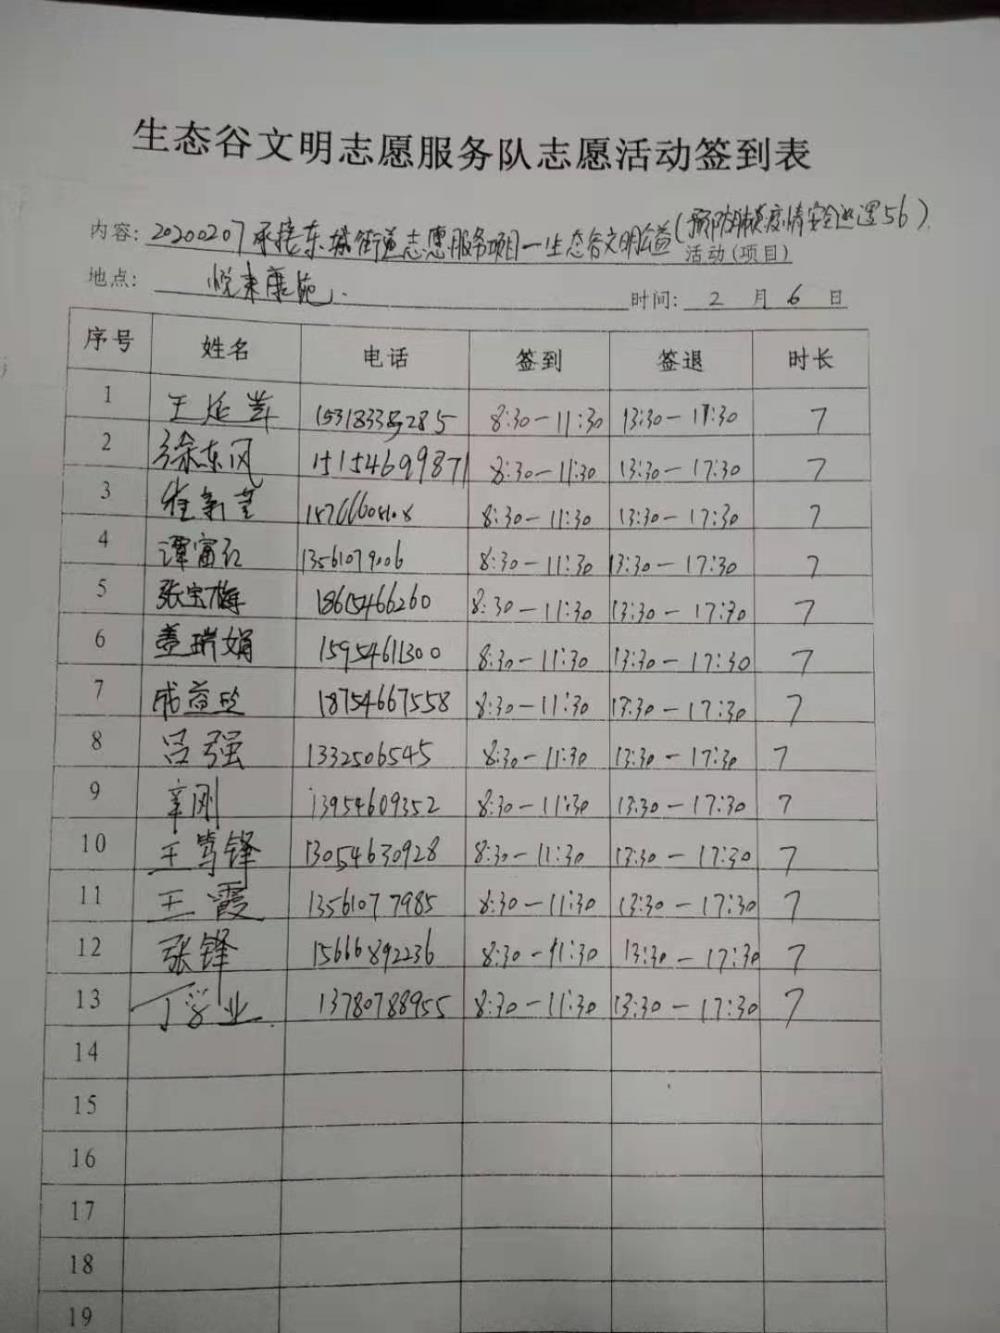 生态谷文明志愿服务队志愿活动签到表
内容: 20200207承接东城街道志愿服务项目—生态谷文明公益(预防肺炎疫情安全巡逻56)活动(项目)
地点: 悦来康苑. 时间: 2 月 6 日
序号 姓名 电话 签到 签退 时长
1 王延萍 15318338285 8:30-11:30 13:30-17:30 7
2 徐东风 15154699871 8:30-11:30 13:30-17:30 7
3 8:30-11:30 13:30-17:30 7
4 谭富红 13561079006 8:30-11:30 13:30-17:30 7
5 张宝梅 18615466260 8:30-11:30 13:30-17:30 7
6 盖瑞娟 15954611300 8:30-11:30 13:30-17:30 7
7 成益 18754667558 8:30-11:30 13:30-17:30 7
8 吕强 1332506545 8:30-11:30 13:30-17:30 7
9 辛刚 13954609352 8:30-11:30 13:30-17:30 7
10 王笃锋 13054630928 8:30-11:30 13:30-17:30 7
11 王霞 1356107 7985 8:30-11:30 13:30-17:30 7
12 张锋 15666892236 8:30-11:30 13:30-17:30 7
13 丁学业 13780788955 8:30-11:30 13:30-17:30 7
14
15
16
17
18
19